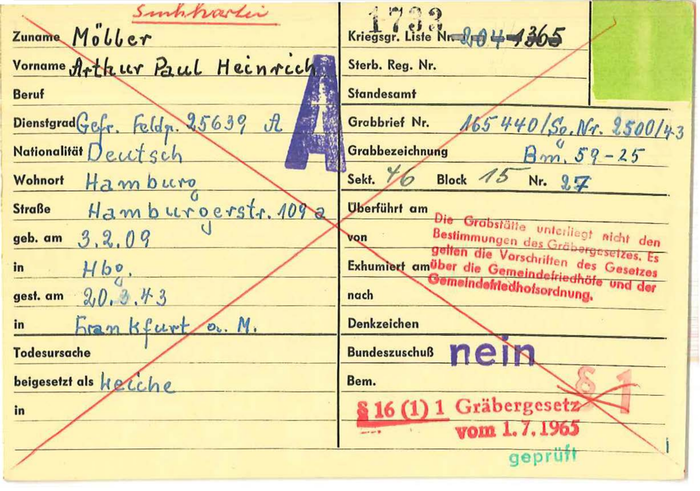 Sinkkartei
1733
Zuname Möller
Vorname Arthur Paul Heinrich
Beruf
Dienstgrad Gefr. Feldp. 25639 A
Nationalität Deutsch
Wohnort Hamburg
Straße Hamburgerstr. 109a
geb. am 3.2.09
in Hbg.
gest. am 20.3.43
in Frankfurt a. M.
Todesursache
beigesetzt als Leiche
in
A
Kriegsgr. Liste Nr. 204 1365
Sterb. Reg. Nr.
Standesamt
Grabbrief Nr. 165440/So. Nr. 2500/43
Grabbezeichnung Bm. 59-25
Sekt. 46 Block 15 Nr. 27
Überführt am
von
Exhumiert am
nach
Die Grabstätte unterliegt nicht den
Bestimmungen des Gräbergesetzes. Es
gelten die Vorschriften des Gesetzes
über die Gemeindefriedhöfe und der
Gemeindefriedhofsordnung.
Denkzeichen
Bundeszuschuß nein
Bem.
§ 1
§ 16 (1) 1 Gräbergesetz
vom 1.7.1965
geprüft